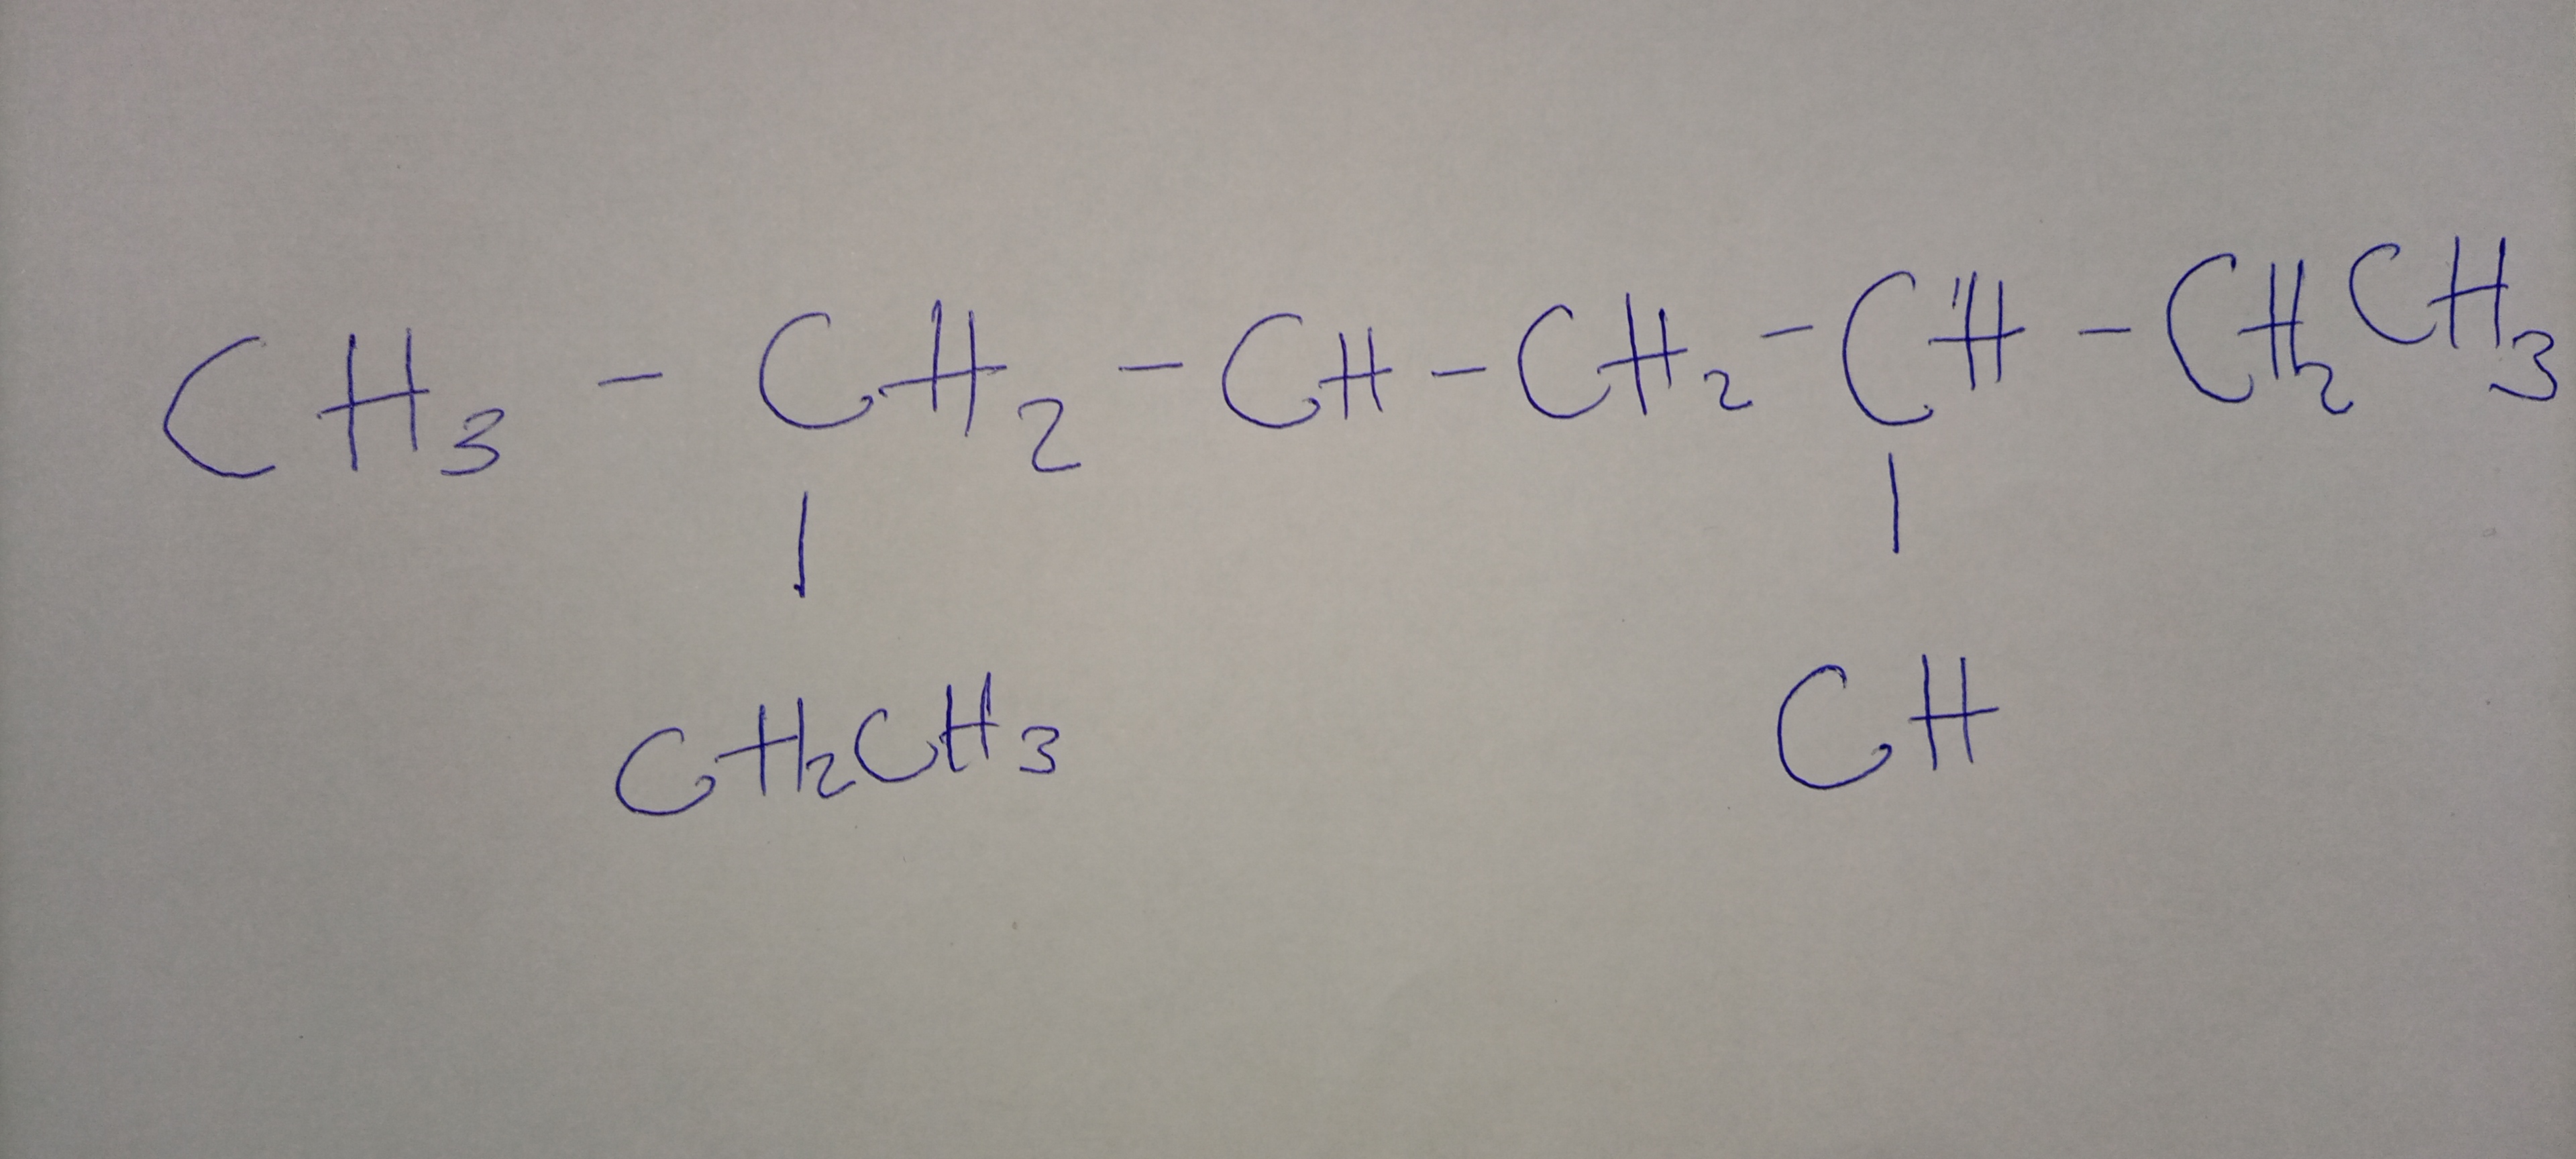 CH₃ - CH₂ - CH - CH₂ - CH - CH₂CH₃
| |
CH₂CH₃ CH